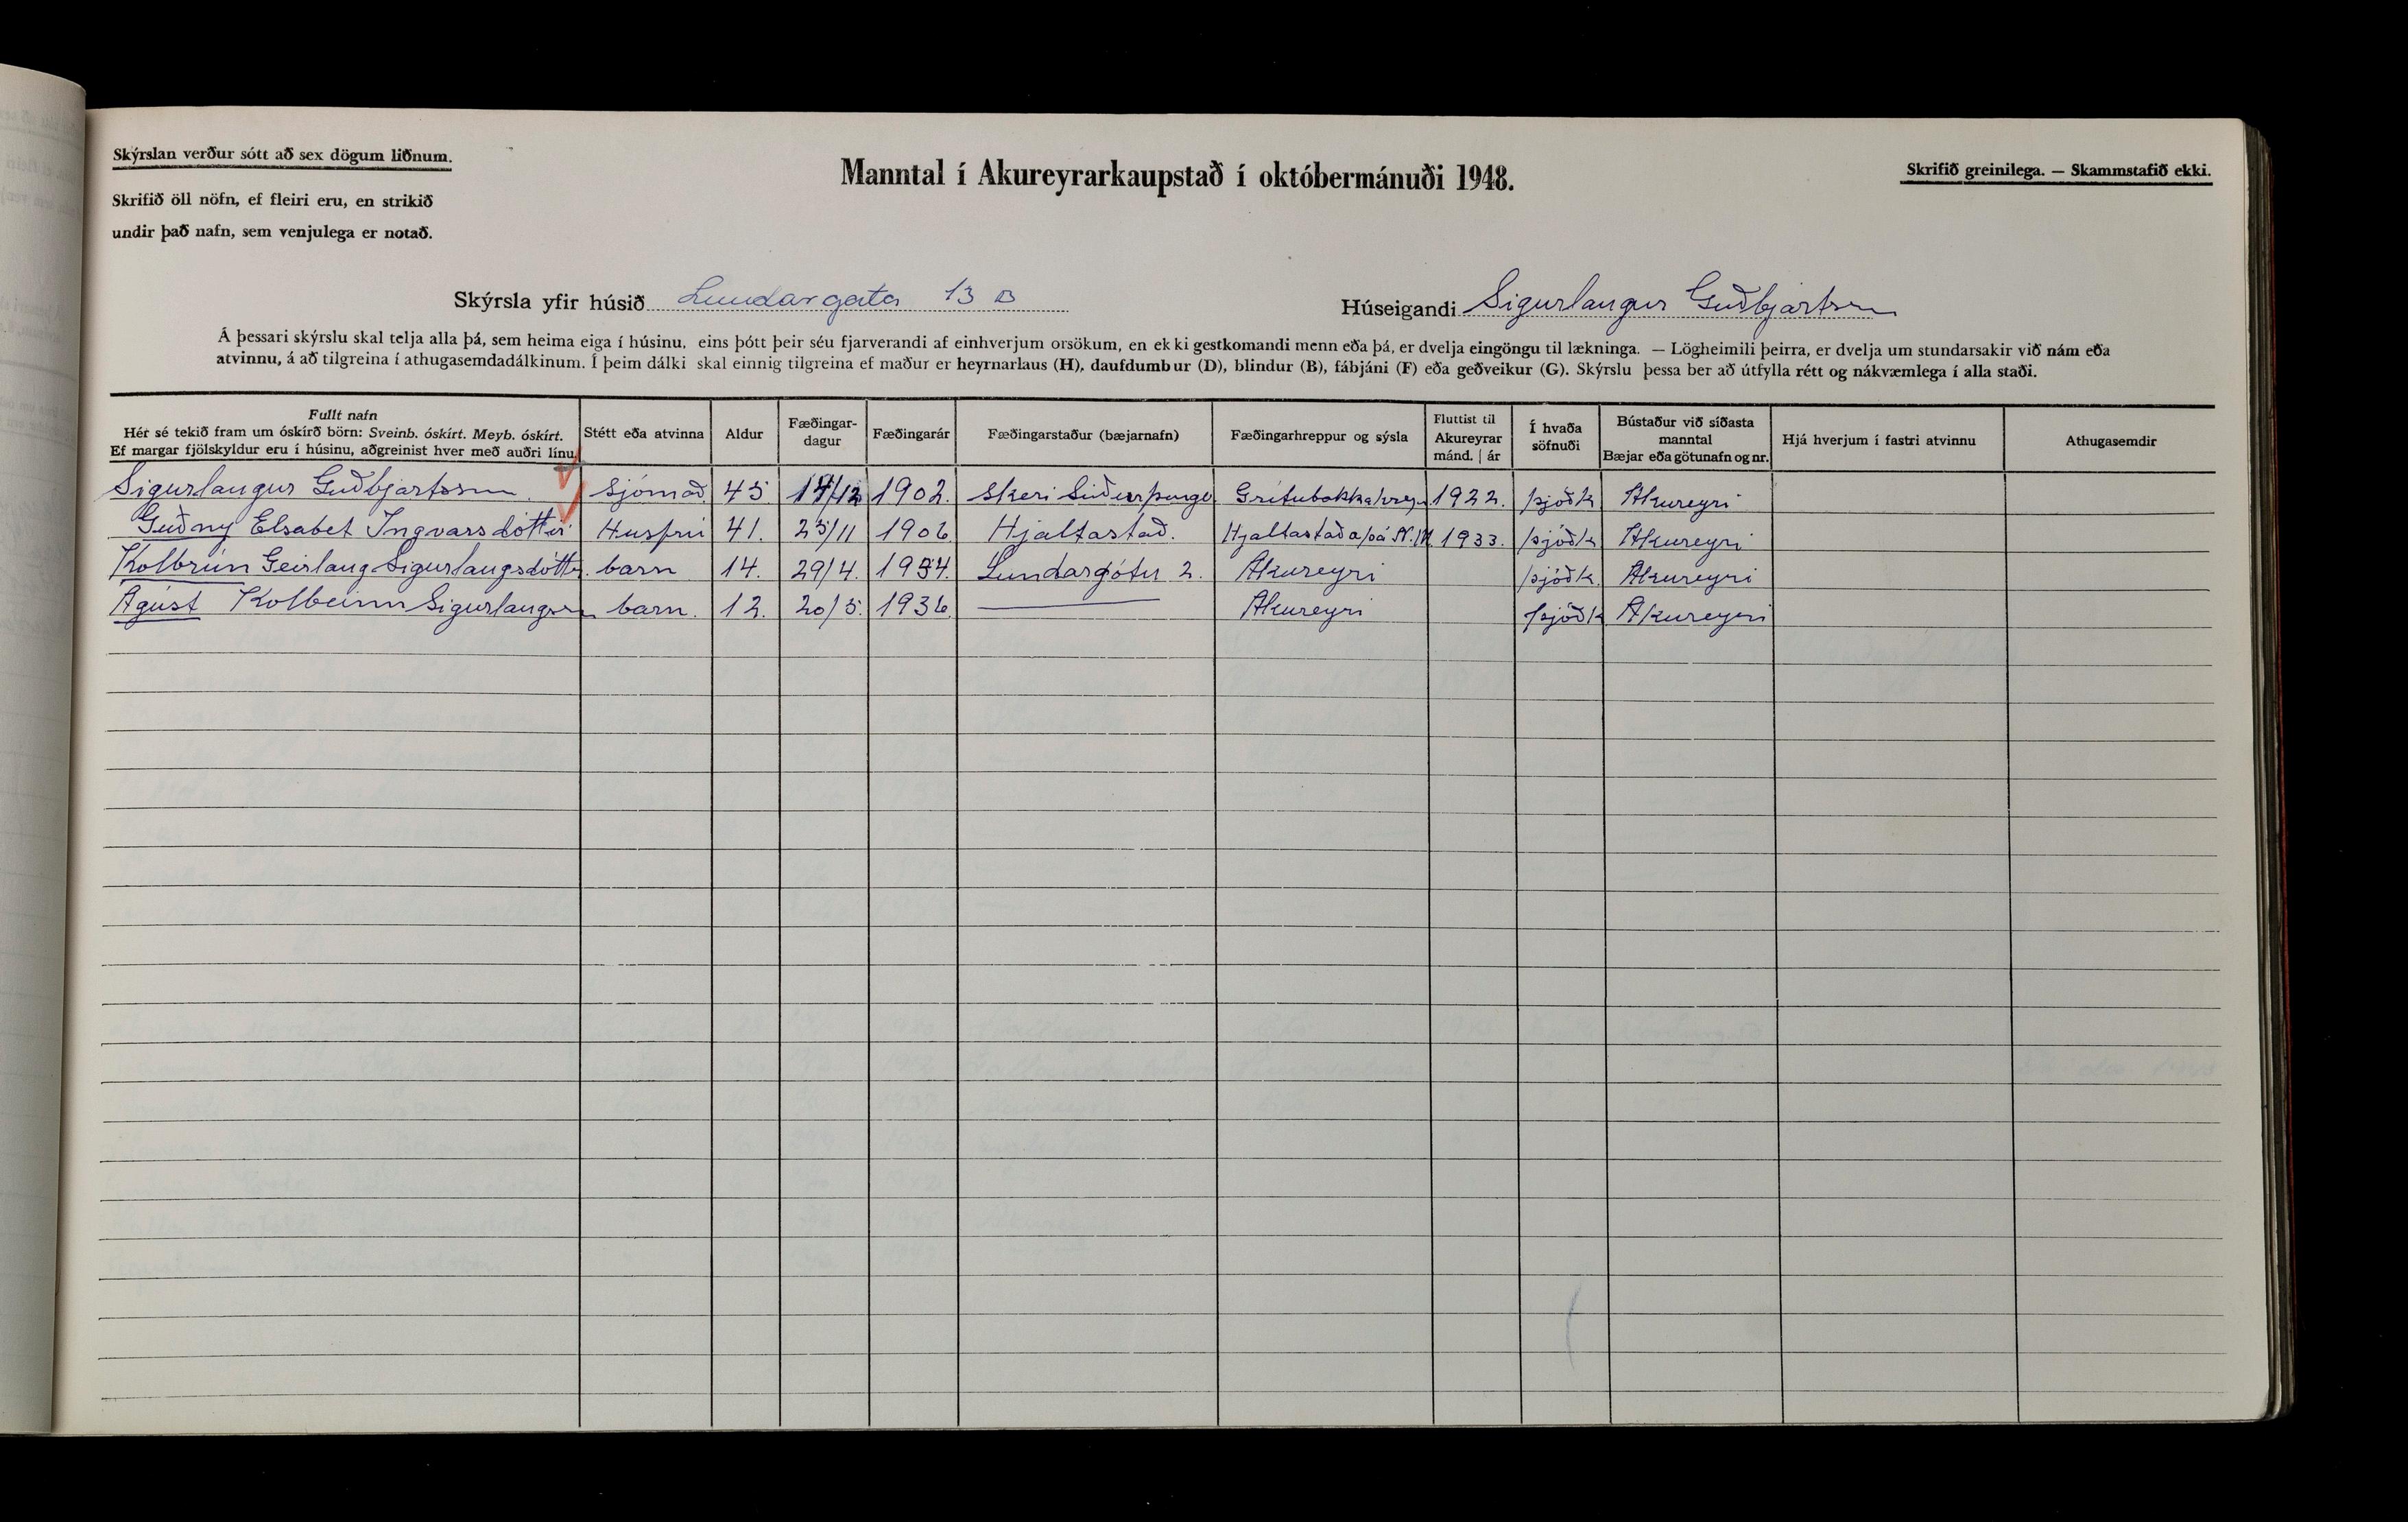 Skýrslan verður sótt að sex dögum liðnum.
Skrifið öll nöfn, ef fleiri eru, en strikið
undir það nafn, sem venjulega er notað.
Manntal í Akureyrarkaupstað í októbermánuði 1948.
Skrifið greinilega. — Skammstafið ekki.
Skýrsla yfir húsið Lundargata 13 B
Húseigandi Sigurlaugur Guðbjartsson
Á þessari skýrslu skal telja alla þá, sem heima eiga í húsinu, eins þótt þeir séu fjarverandi af einhverjum orsökum, en ekki gestkomandi menn eða þá, er dvelja eingöngu til lækninga. — Lögheimili þeirra, er dvelja um stundarsakir við nám eða
atvinnu, á að tilgreina í athugasemdadálkinum. Í þeim dálki skal einnig tilgreina ef maður er heyrnarlaus (H), daufdumbur (D), blindur (B), fábjáni (F) eða geðveikur (G). Skýrslu þessa ber að útfylla rétt og nákvæmlega í alla staði.
Fullt nafn
Hér sé tekið fram um óskírð börn: Sveinb. óskírt. Meyb. óskírt.
Ef margar fjölskyldur eru í húsinu, aðgreinist hver með auðri línu.
Stétt eða atvinna
Aldur
Fæðingar-
dagur
Fæðingarár
Fæðingarstaður (bæjarnafn)
Fæðingarhreppur og sýsla
Fluttist til
Akureyrar
mánd. | ár
Í hvaða
söfnuði
Bústaður við síðasta
manntal
Bæjar eða götunafn og nr.
Hjá hverjum í fastri atvinnu
Athugasemdir
Sigurlaugur Guðbjartsson. Sjómað. 45 12 1902. Skeri Suðurþinge Grítubakkahrep 1922. þjóðk Akureyri
Guðny Elsabet Ingvarsdóttir Husfrú 41. 25/11 1906. Hjaltastað. Hjaltastaðaþá N.M 1933. þjóðk Akureyri
Kolbrún Geirlaug Sigurlaugsdóttir. barn 14. 29/4. 1934. Lundargötu 2. Akureyri þjóðk. Akureyri
Agúst Kolbeinn Sigurlaugsson barn. 12. 20/5. 1936. — Akureyri þjóðk Akureyri